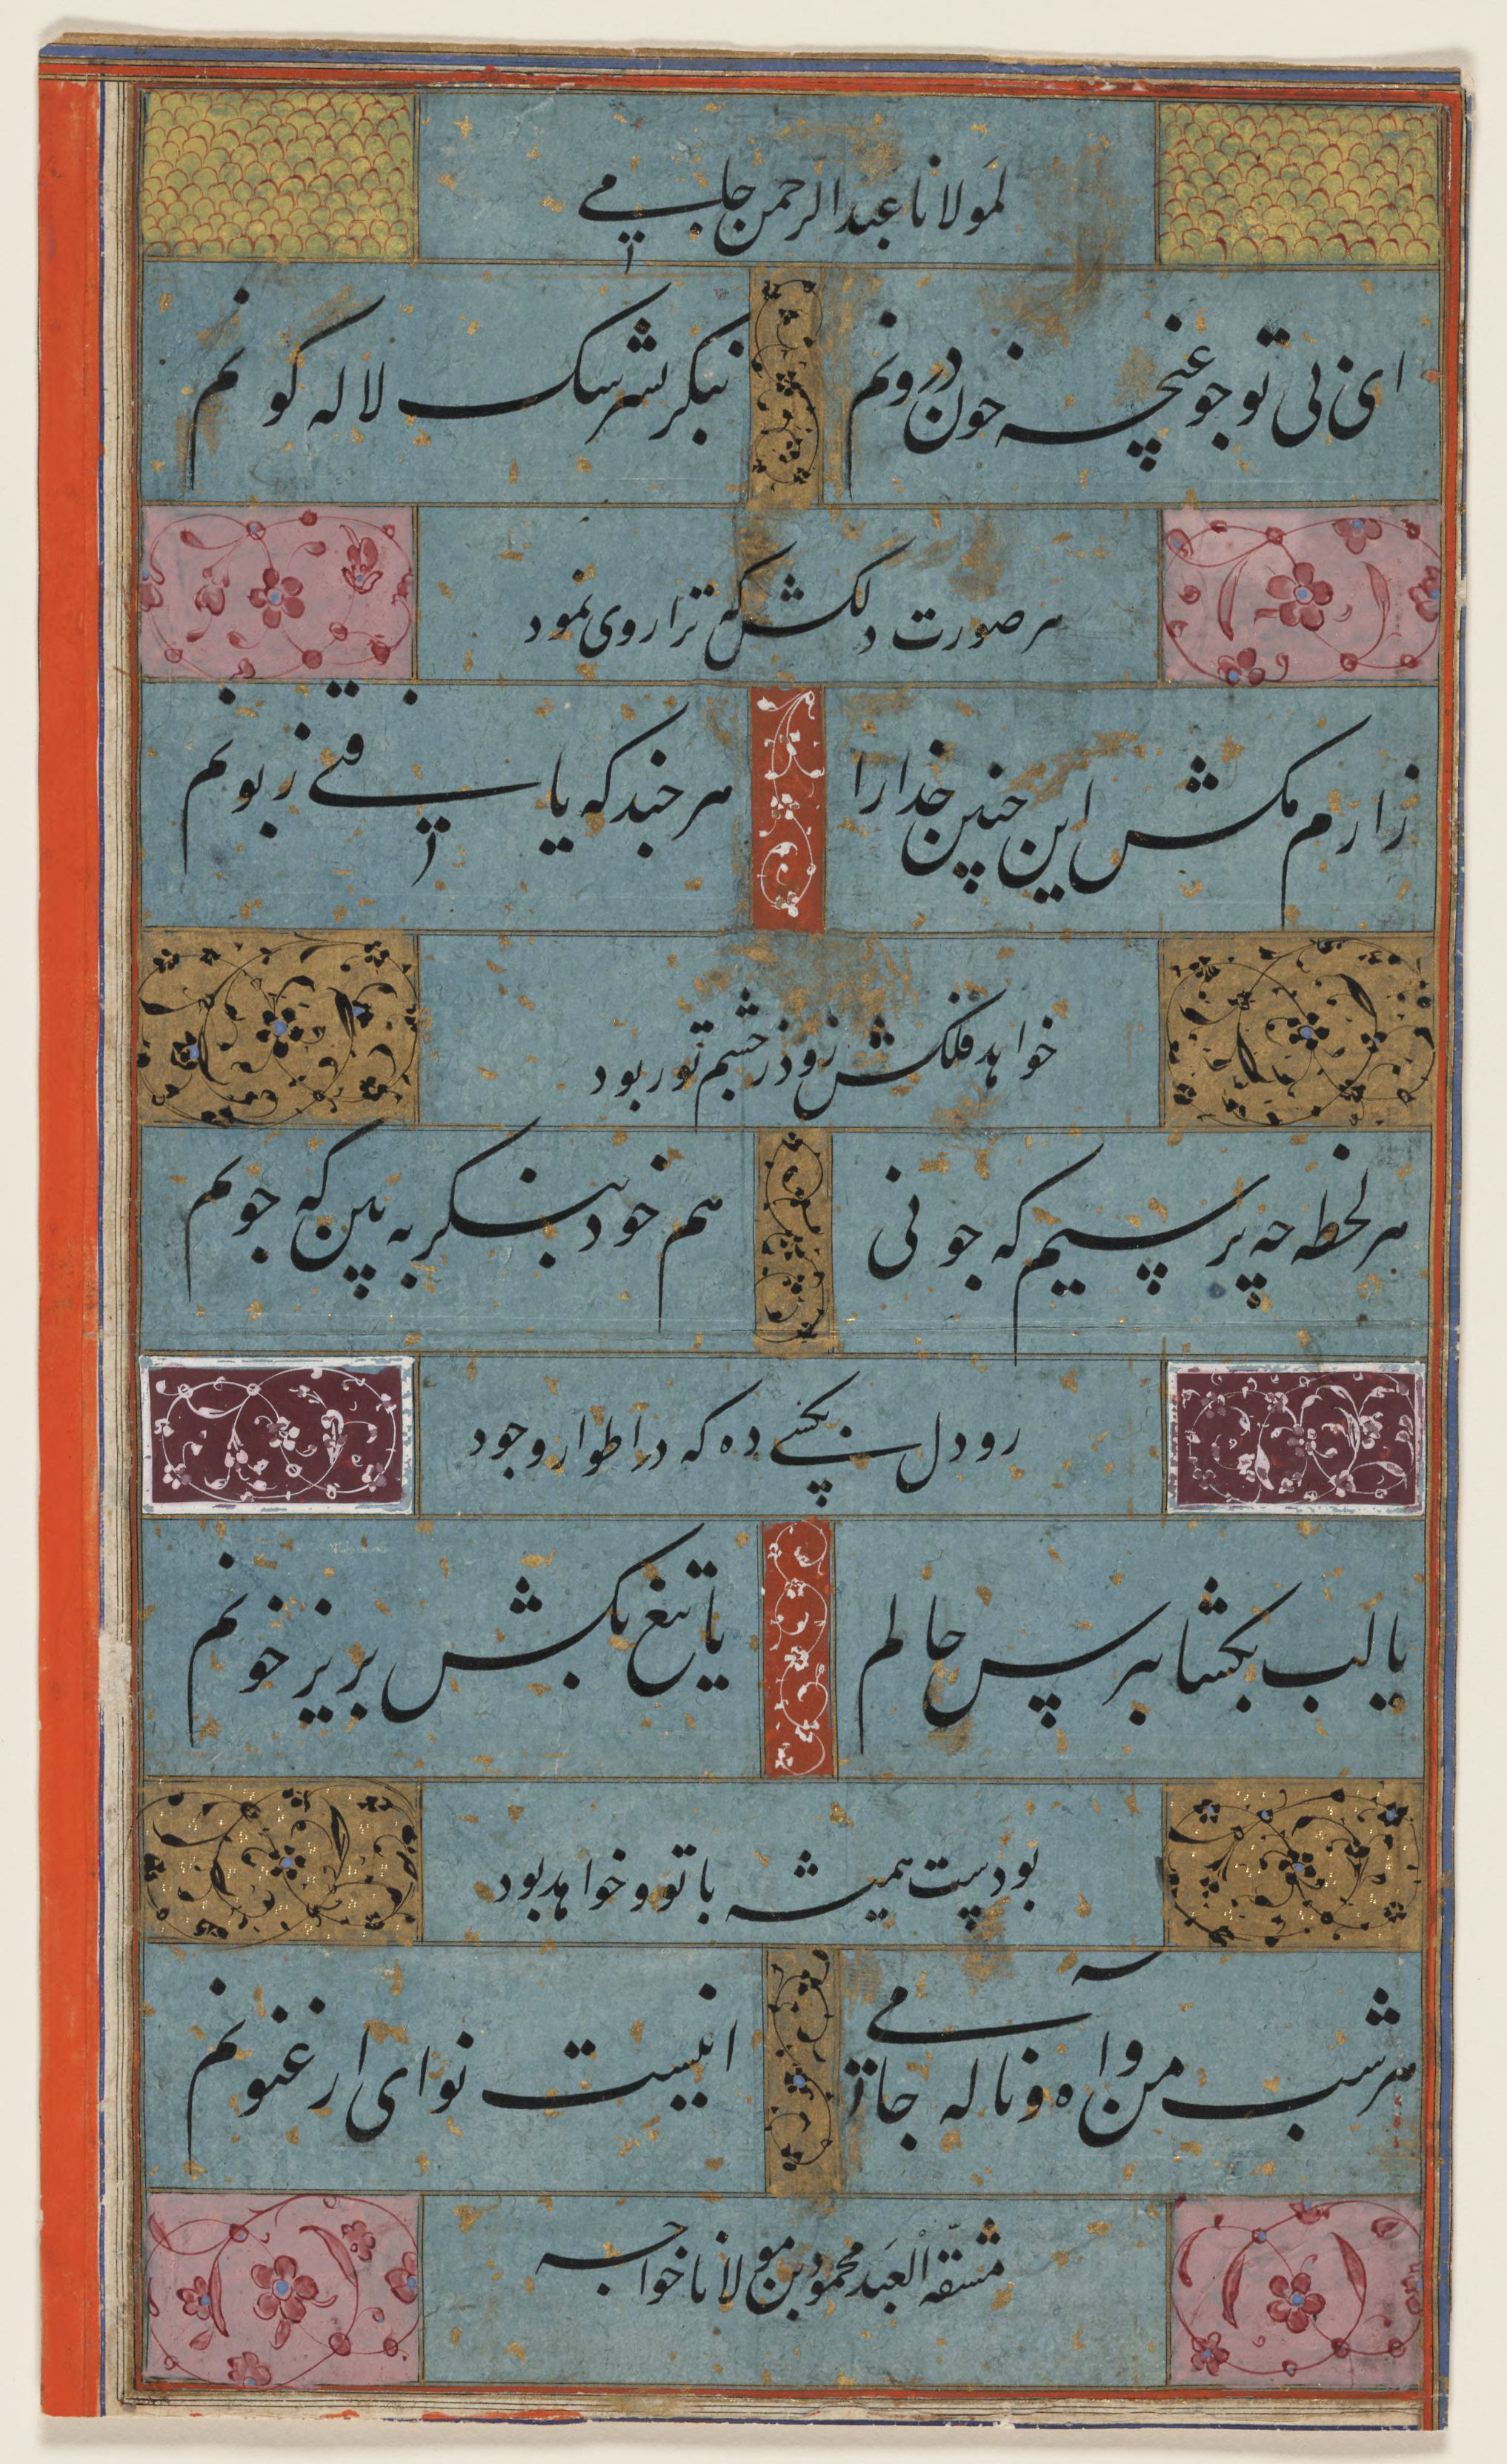 لمولانا عبد الرحمن جامی
ای بی تو چو غنچه خون درونم
بنگر بسرشک لاله کونم
هر صورت دلکش که ترا روی نمود
زارم مکش این چنین خدا را
هر چند که یافتی زبونم
خواهد فلکش زود ز چشم تو ربود
هر لحظه چه پرسیم که چونی
هم خود بنکر به بین که چونم
رو دل بکسی ده که در اطوار وجود
یا لب بکشا بپرس حالم
یا تیغ بکش بریز خونم
بودست همیشه با تو و خواهد بود
هر شب من و آه و ناله جامی
اینست نوای ارغنونم
مشقه العبد محمود بن مولانا خواجه